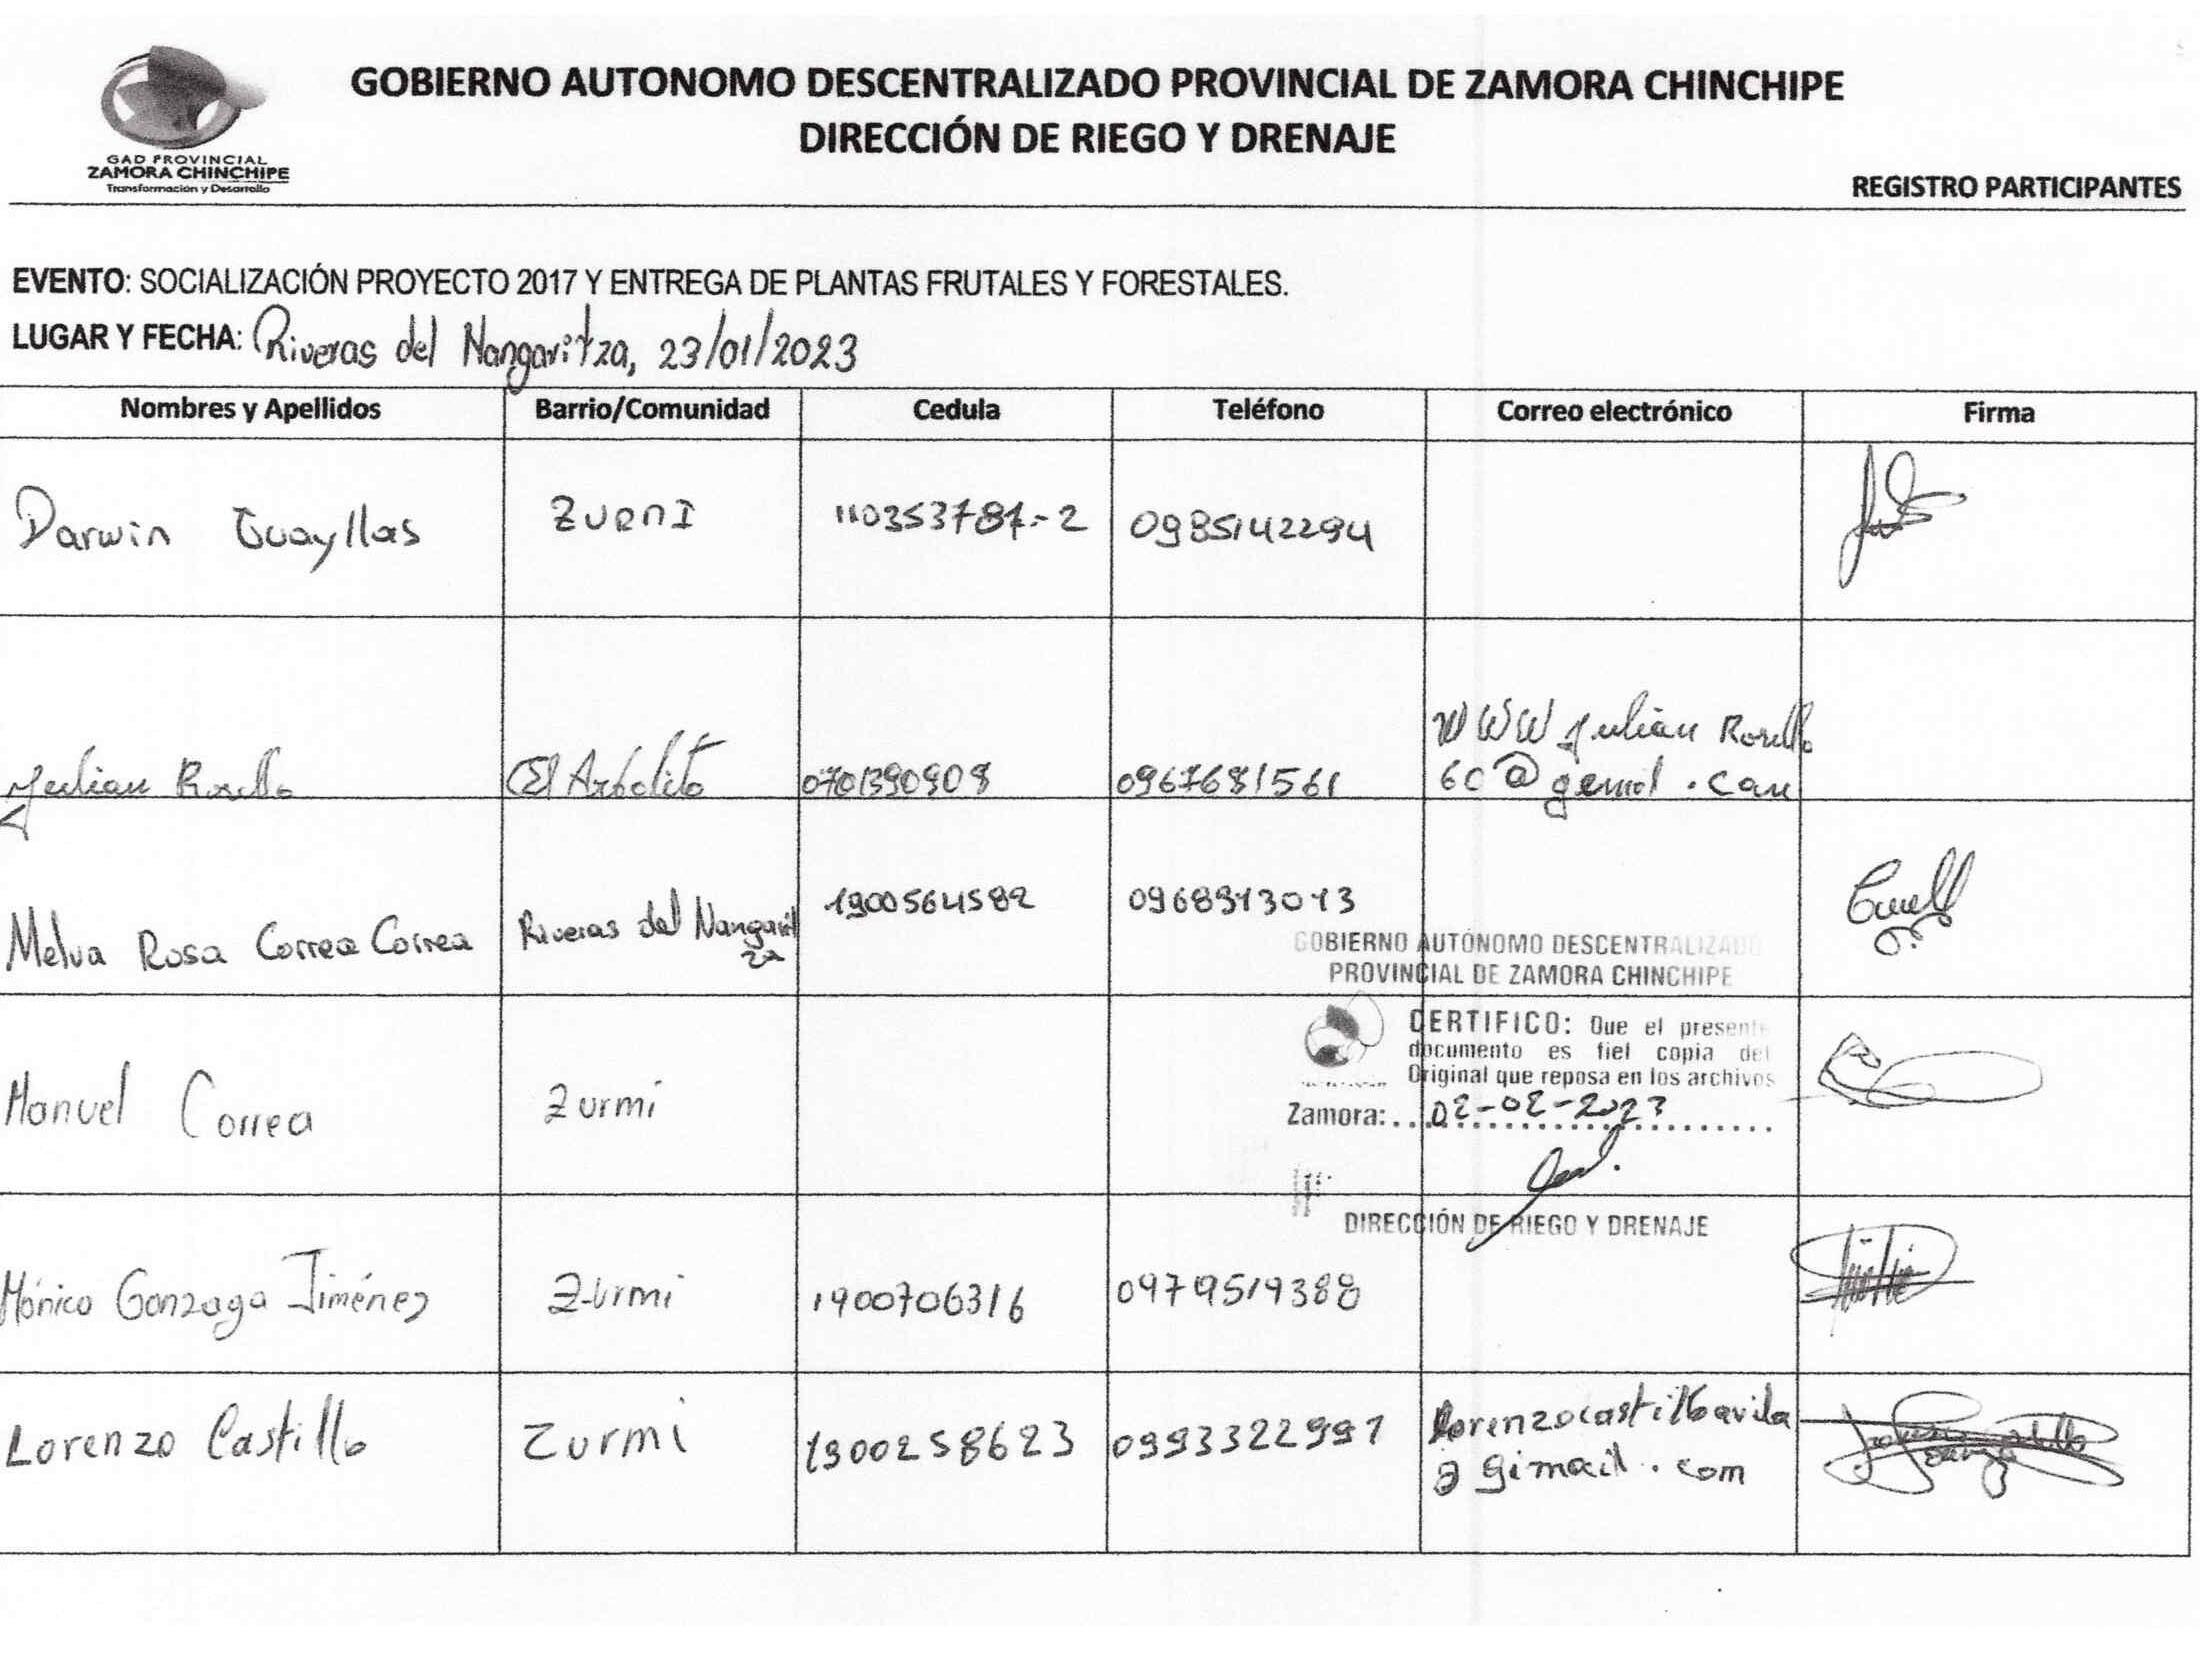 GAD PROVINCIAL
ZAMORA CHINCHIPE
Transformación y Desarrollo
GOBIERNO AUTONOMO DESCENTRALIZADO PROVINCIAL DE ZAMORA CHINCHIPE
DIRECCIÓN DE RIEGO Y DRENAJE
REGISTRO PARTICIPANTES
EVENTO: SOCIALIZACIÓN PROYECTO 2017 Y ENTREGA DE PLANTAS FRUTALES Y FORESTALES.
LUGAR Y FECHA: Riveras del Nangaritza, 23/01/2023
Nombres y Apellidos Barrio/Comunidad Cedula Teléfono Correo electrónico Firma
Darwin Guayllas ZURMI 110353787-2 0985142294
Julian Rosillo El Arbolito 0701390908 0967681561
WWW Julian Rosillo
60@gemil.com
Melva Rosa Correa Correa Riveras del Nangarit 1900564582 0968913013
za
Manuel Correa Zurmi
Mónica Gonzaga Jiménez Zurmi 1900706316 0979519388
Lorenzo Castillo Zurmi 1900258623 0993322991
lorenzocastilloavila
@gimail.com
GOBIERNO AUTÓNOMO DESCENTRALIZADO
PROVINCIAL DE ZAMORA CHINCHIPE
CERTIFICO: Que el presente
documento es fiel copia del
Original que reposa en los archivos
Zamora: 02-02-2023
DIRECCIÓN DE RIEGO Y DRENAJE